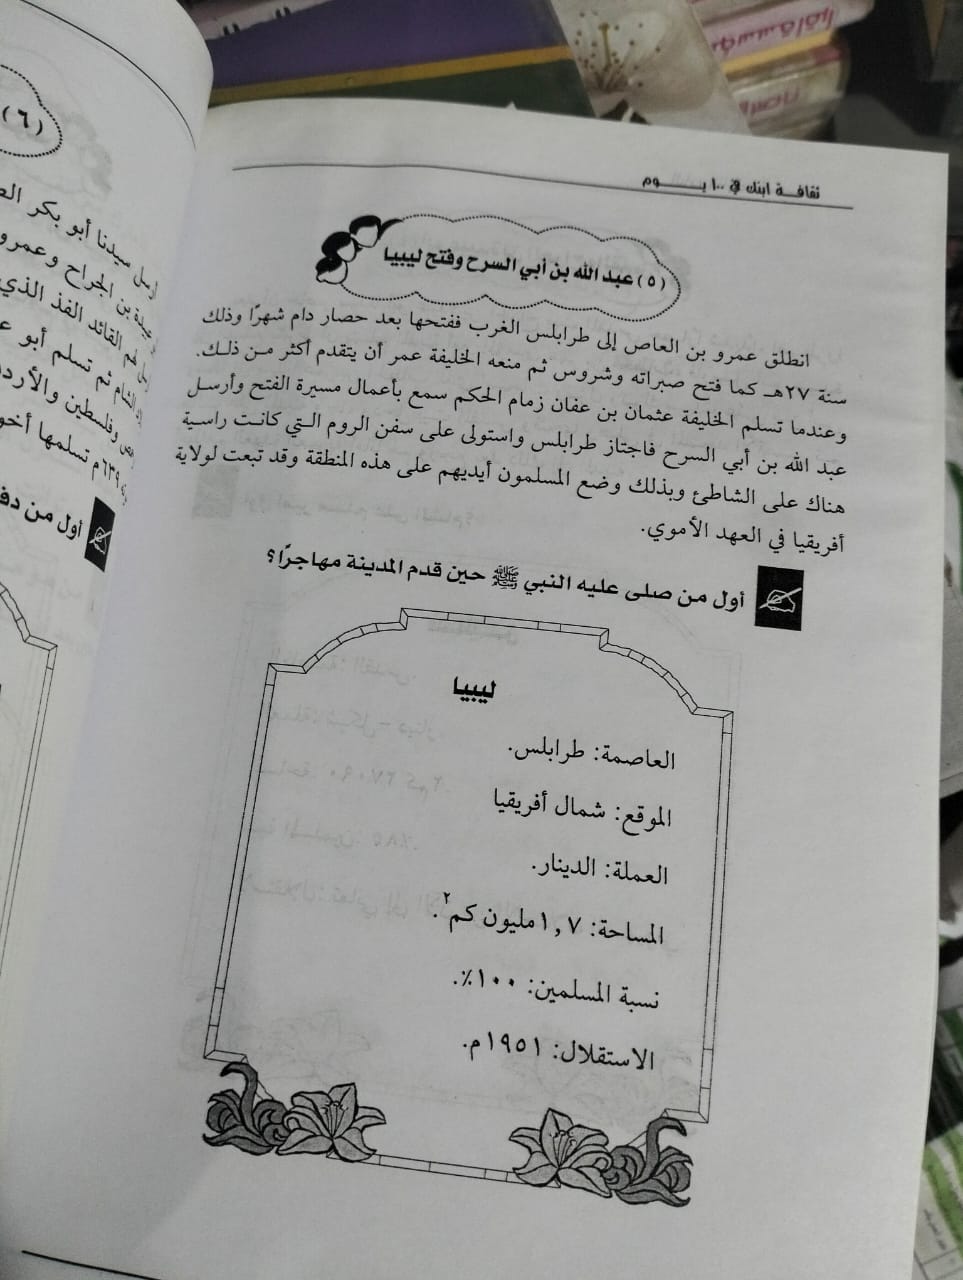 ثقافة ابنك في ١٠٠ يـــوم
(٥) عبد الله بن أبي السرح وفتح ليبيا
انطلق عمرو بن العاص إلى طرابلس الغرب ففتحها بعد حصار دام شهرًا وذلك
سنة ٢٧هـ كما فتح صبراته وشروس ثم منعه الخليفة عمر أن يتقدم أكثر من ذلك.
وعندما تسلم الخليفة عثمان بن عفان زمام الحكم سمع بأعمال مسيرة الفتح وأرسل
عبد الله بن أبي السرح فاجتاز طرابلس واستولى على سفن الروم التي كانت راسية
هناك على الشاطئ وبذلك وضع المسلمون أيديهم على هذه المنطقة وقد تبعت لولاية
أفريقيا في العهد الأموي.
أول من صلى عليه النبي ﷺ حين قدم المدينة مهاجرًا؟
ليبيا
العاصمة: طرابلس.
الموقع: شمال أفريقيا
العملة: الدينار.
المساحة: ١,٧ مليون كم٢.
نسبة المسلمين: ١٠٠٪.
الاستقلال: ١٩٥١م.
(٦)
سيدنا أبو بكر
عبيدة بن الجراح وعمرو
لهم القائد الفذ الذي
ثم تسلم أبو
وفلسطين والأردن
تسلمها أخو
أول من